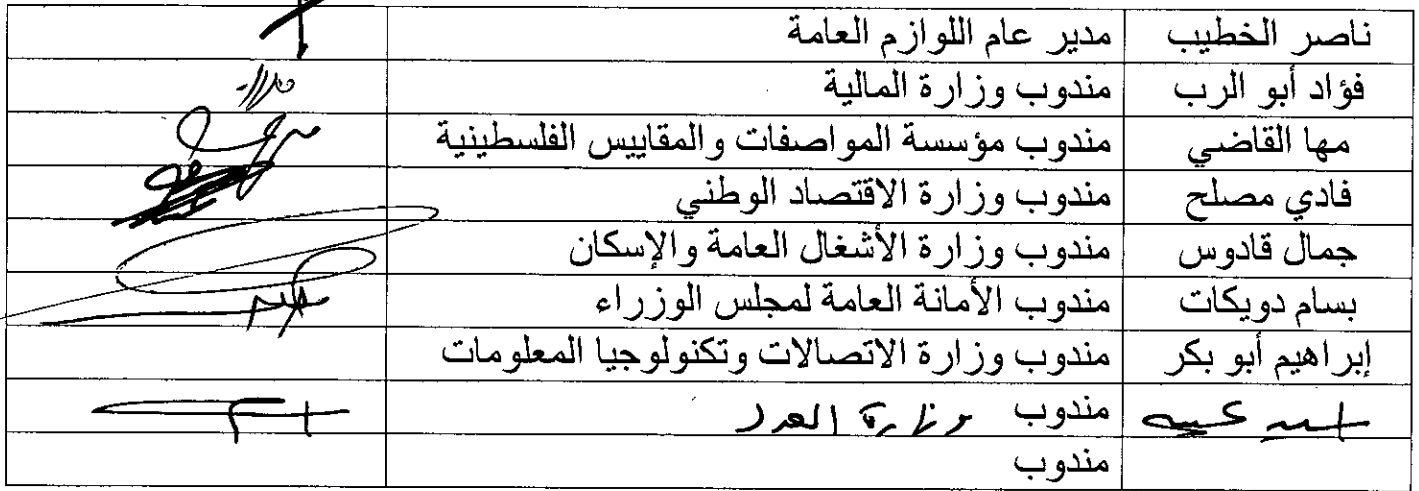 ناصر الخطيب مدير عام اللوازم العامة
فؤاد أبو الرب مندوب وزارة المالية
مها القاضي مندوب مؤسسة المواصفات والمقاييس الفلسطينية
فادي مصلح مندوب وزارة الاقتصاد الوطني
جمال قادوس مندوب وزارة الأشغال العامة والإسكان
بسام دويكات مندوب الأمانة العامة لمجلس الوزراء
إبراهيم أبو بكر مندوب وزارة الاتصالات وتكنولوجيا المعلومات
مندوب وزارة العدل
مندوب